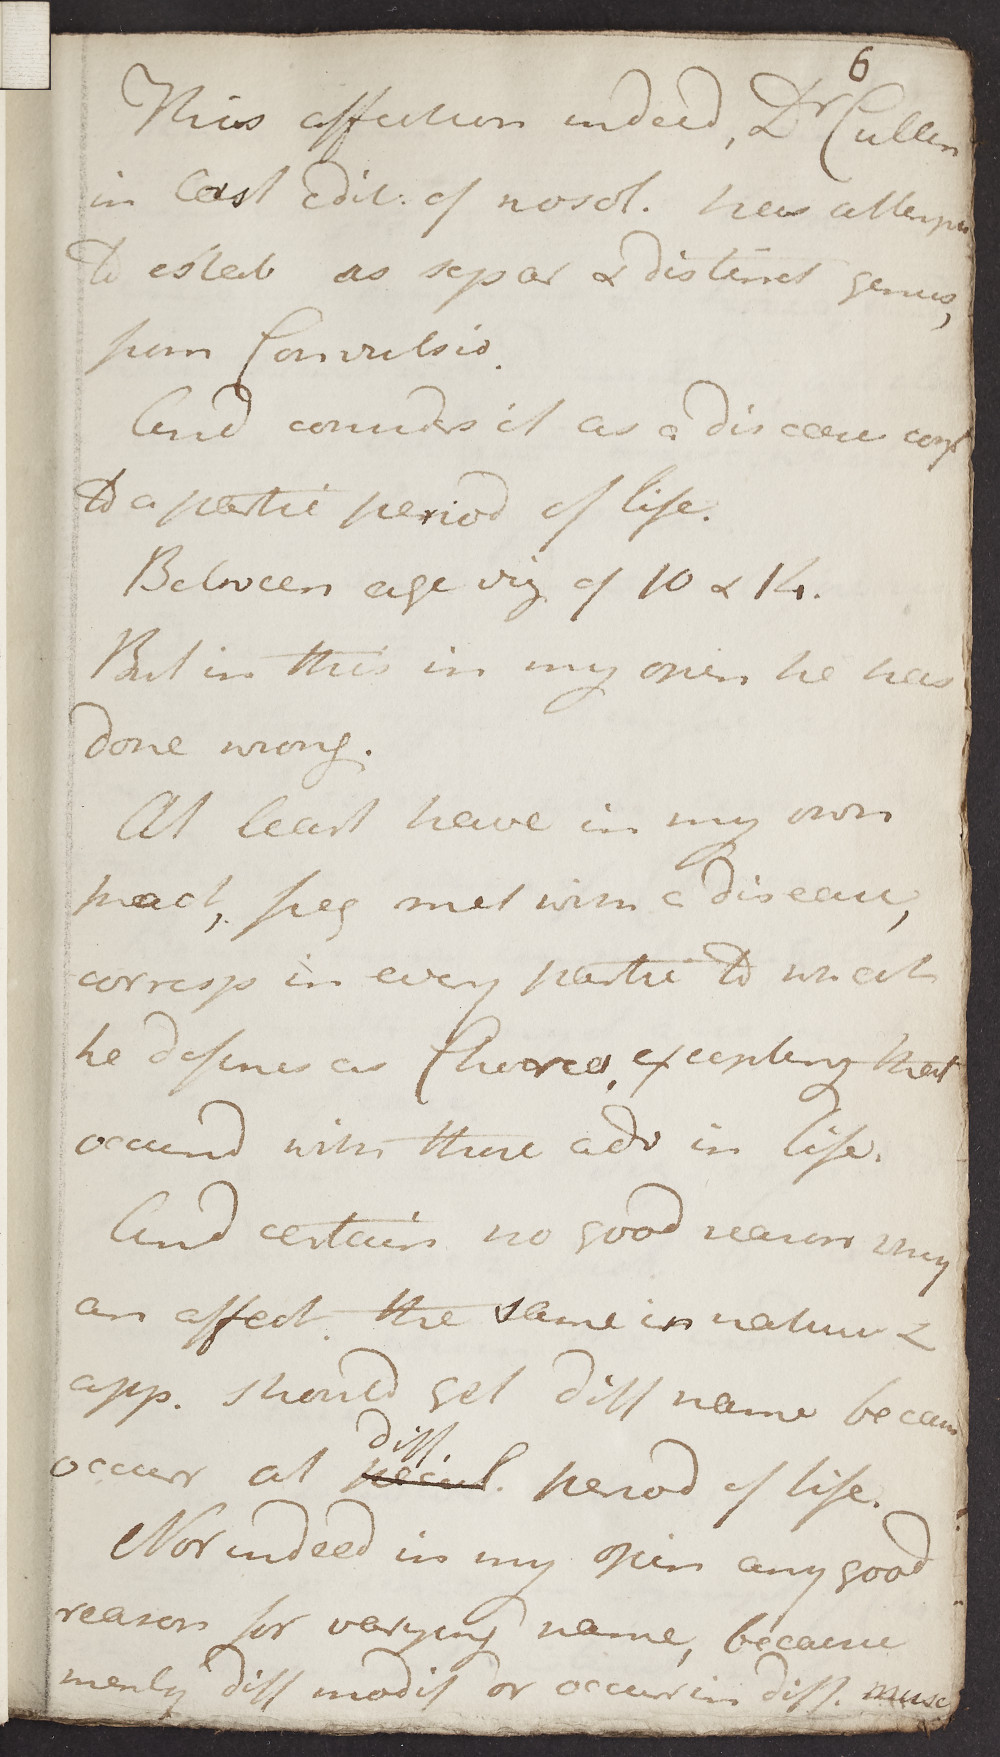 6
This affection indeed, Dr Cullen
in last edit: of nosol. has attempt
to estab as separ & distinct genus,
from Convulsio.
And considers it as a disease conf
to a partic period of life.
Between age viz of 10 & 14.
But in this in my opin he has
done wrong.
At least have in my own
pract, freq met with a disease,
corresp in every partic to what
he defines as Chorea, excepting that
occurred with those adv in life.
And certain no good reason why
an affect. the same in nature &
app. should get diff name because
diff
occur at period of life.
Nor indeed in my opin any good
reason for varying name, because
merely diff modif or occur in diff. musc